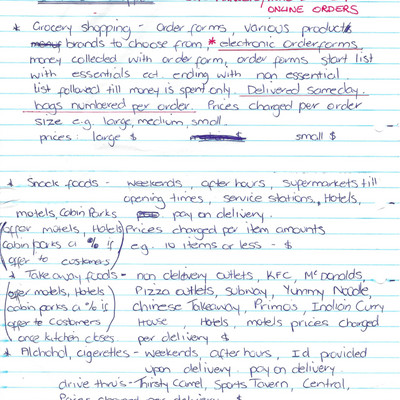 ONLINE ORDERS
* Grocery shopping - order forms, various products
brands to choose from, * electronic orderforms,
money collected with order form, order forms start list
with essentials ect ending with non essential.
list followed till money is spent only. Delivered sameday.
bags numbered per order. Prices charged per order
size e.g. large, medium, small.
prices: large $ medium $ small $
* Snack foods - weekends, after hours, supermarkets till
opening times, service stations, Hotels,
motels, Cabin Parks pay on delivery.
(offer motels, Hotels Prices charged per item amounts
cabin parks a % is e.g. 10 items or less - $
offer to customers)
* Take away foods - non delivery outlets, KFC, McDonalds,
(offer motels, Hotels Pizza outlets, Subway, Yummy Noodle,
cabin parks a % if Chinese Takeaway, Primos, Indian Curry
offer to customers House, Hotels, motels prices charged
once kitchen closes per delivery $
* Alchohol, cigerettes - weekends, after hours, I.d provided
upon delivery. pay on delivery.
drive thrus - Thirsty Camel, Sports Tavern, Central,
Prices charged per delivery $